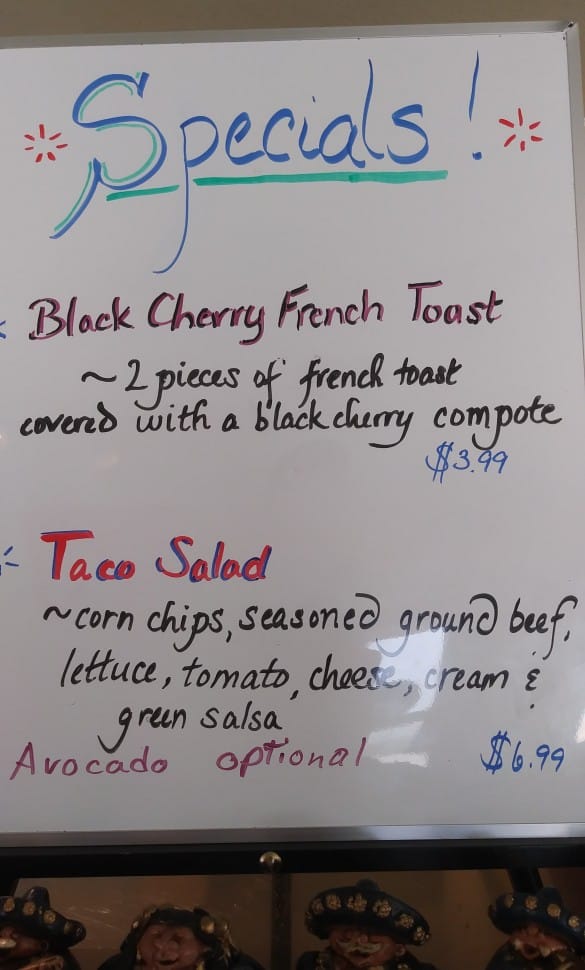 Specials!
Black Cherry French Toast
~2 pieces of french toast
covered with a black cherry compote
$3.99
Taco Salad
~corn chips, seasoned ground beef,
lettuce, tomato, cheese, cream &
green salsa
Avocado optional $6.99